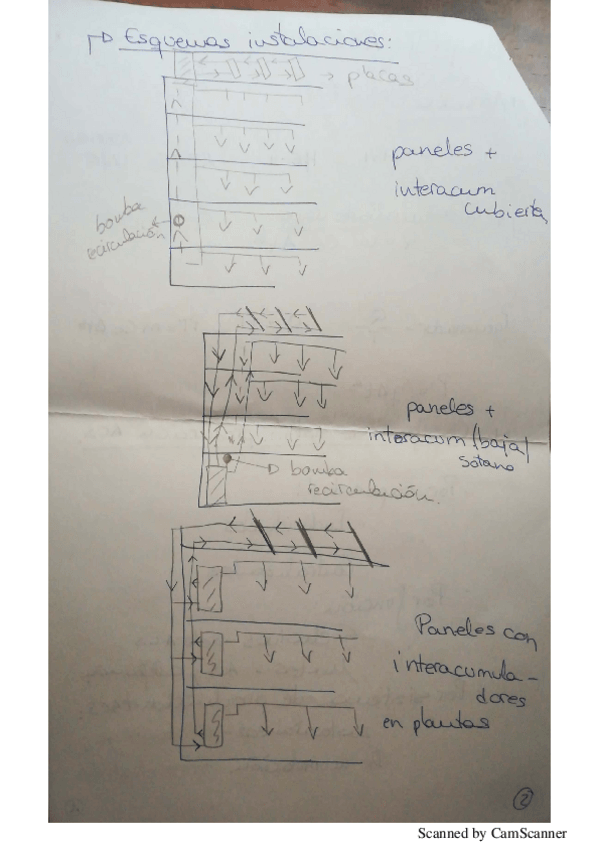 Esquemas instalaciones:
→ placas
paneles +
interacum
cubierta
bomba
recirculación
paneles +
interacum (baja/
sotano
bomba
recirculación.
Paneles con
interacumula-
dores
en plantas
2
Scanned by CamScanner